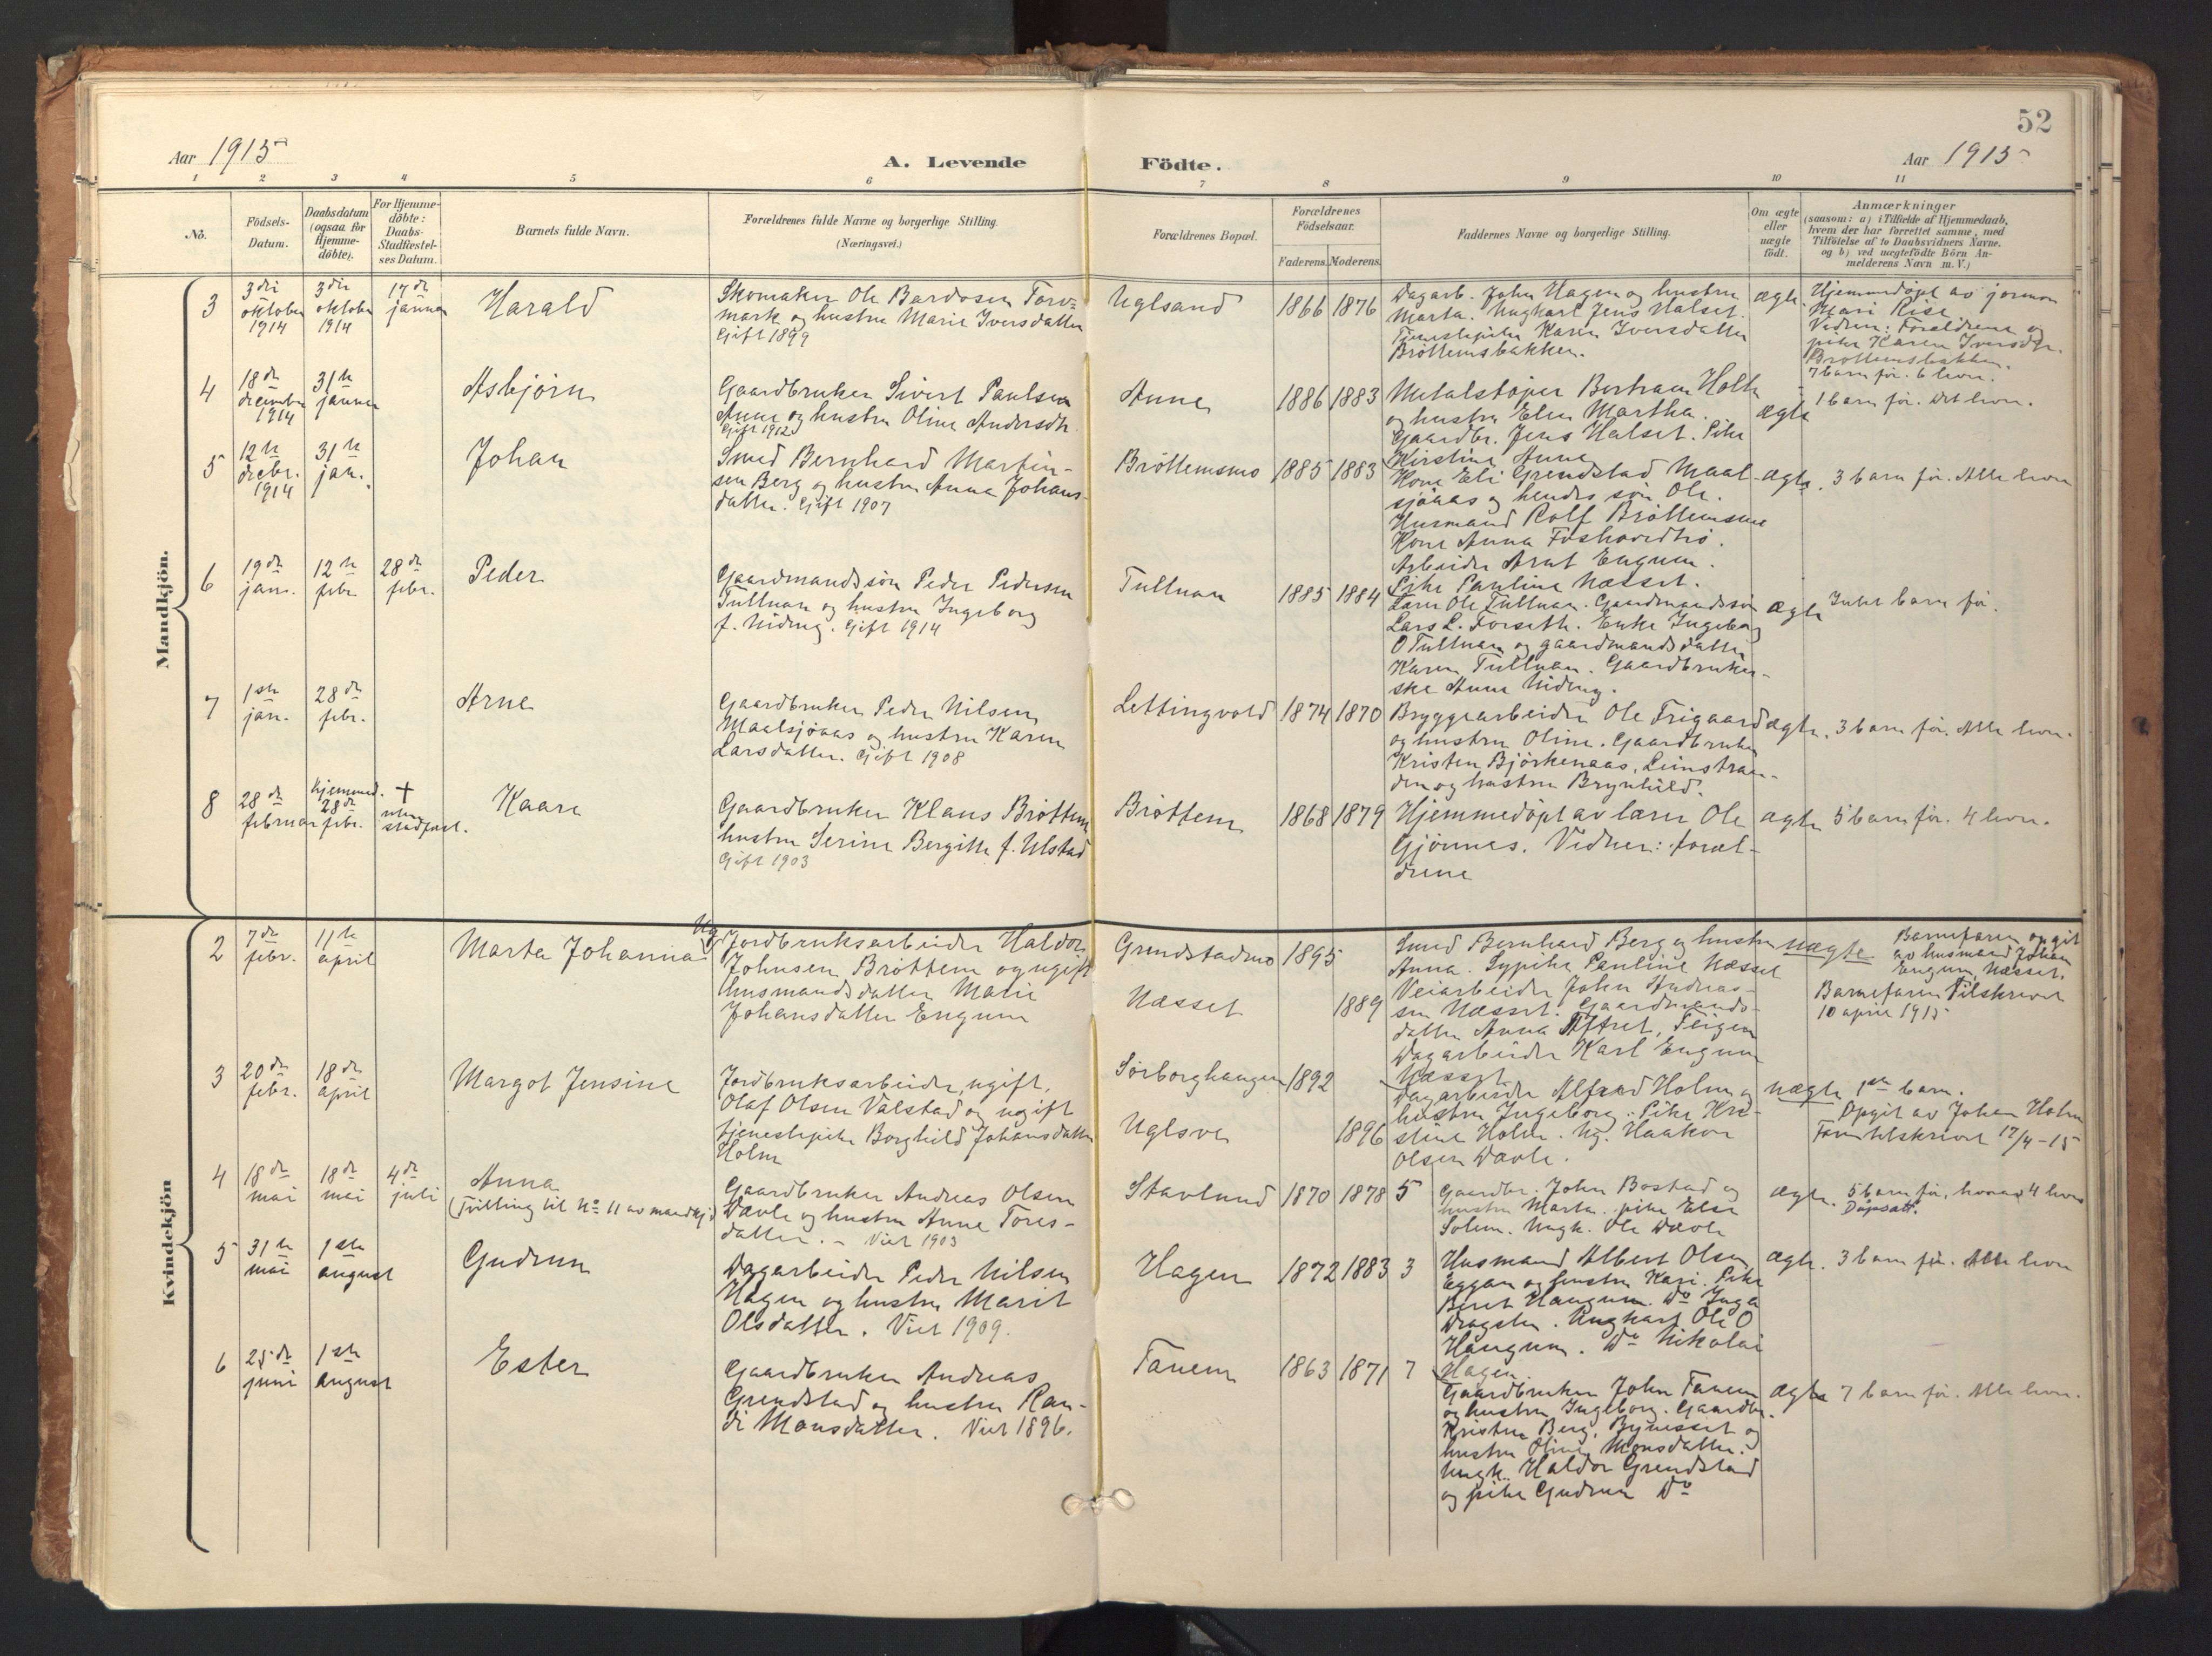 52
Aar 1915
A. Levende Födte.
Aar 1915
1 2 3 4 5 6 7 8 9 10 11
No.
Födsels-
Datum.
Daabsdatum
(ogsaa for
Hjemme-
döbte).
For Hjemme-
döbte:
Daabs-
Stadfæstel-
ses Datum.
Barnets fulde Navn.
Forældrenes fulde Navne og borgerlige Stilling.
(Næringsvei.)
Forældrenes Bopæl.
Forældrenes
Födselsaar.
Faderens. Moderens.
Faddernes Navne og borgerlige Stilling.
Om ægte
eller
uægte
födt.
Anmærkninger
(saasom: a) i Tilfælde af Hjemmedaab,
hvem der har forrettet samme, med
Tilföielse af to Daabsvidners Navne.
og b) ved uægtefödte Börn An-
melderens Navn m. V.)
Mandkjön.
3
3die
oktober
1914
3die
oktober
1914
17de
januar
Harald
Skomaker Ole Bardosen Torv=
mark og hustru Marie Iversdatter
Gift 1899
Uglsand
1866 1876
Dagarb. John Hagen og hustru
Marta. Ungkarl Jens Halset.
Tjenestepike Karen Iversdatter
Bröttemsbakken.
ægte.
Hjemmedöpt av jormor
Mari Rise.
Vidner: Forældrene og
pike Karen Iversdtr.
Bröttemsbakken.
7 barn för. 6 lever.
4
18de
december
1914
31te
januar
Asbjörn
Gaardbruker Sivert Paulsen
Anne og hustru Oline Andersdtr.
Gift 1912
Anne
1886 1883
Metalstöper Bertram Holte
og hustru Elen Martha.
Gaardbr. Jens Halset. Pike
Kirstine Anne
ægte
1 barn för. Det lever.
5
12te
decbr.
1914
31te
jan.
Johan
Smed Bernhard Martin-
sen Berg og hustru Anna Johans-
datter. Gift 1907
Bröttemsmo
1885 1883
Kone Eli Grendstad Maal-
sjöaas og hendes sön Ole.
Husmand Rolf Bröttemsmo
Kone Anna
Arbeider Arnt Engum.
Pike Pauline Næsset.
ægte.
3 barn för. Alle lever
6
19de
jan.
12te
febr.
28de
febr.
Peder
Gaardmandssön Peder Pedersen
Tulluan og hustru Ingeborg
f. Nideng. Gift 1914
Tulluan
1885 1884
Lærer Ole Tulluan. Gaardmandssön
Lars L. Forseth. Enke Ingeborg
O Tulluan og gaardmandsdatter
Karen Tulluan. Gaardbruker-
ske Anne Nideng.
ægte
Intet barn för.
7
1ste
jan.
28de
febr.
Arne
Gaardbruker Peder Nilsen
Maalsjöaas og hustru Karen
Larsdatter. Gift 1908
Lettingvold
1874 1870
Bryggearbeider Ole Trigaard
og hustru Oline. Gaardbruker
Kristen Björkenaas, Leinstran-
den og hustru Brynhild.
ægte.
3 barn för. Alle lever.
8
28de
februar
Hjemmed.
28de
febr.
+
uten
stadfæst.
Kaare
Gaardbruker Klaus Bröttem
hustru Serine Bergitte f. Ulstad
Gift 1903
Bröttem
1868 1879
Hjemmedöpt av lærer Ole
Gjönnes. Vidner: foræl-
drene
ægte
5 barn för. 4 lever.
Kvindekjön
2
7de
febr.
11te
april
Marta Johanna
Ug.
Jordbruksarbeider Haldor
Johnsen Bröttem og ugift
husmandsdatter Marie
Johansdatter Engum
Grendstadmo
Næsset
1895
1889
Smed Bernhard Berg og hustru
Anna. Sypike Pauline Næsset
Veiarbeider John Andreas-
sen Næsset. Gaardmands-
datter Anna Aftret, Teigen
Dagarbeider Karl Engum
Næsset.
uægte
Barnefaren opgit
av husmand Johan
Engum, Næsset.
Barnefaren tilskrevet
10 april 1915
3
20de
febr.
18de
april
Margot Jensine
Jordbruksarbeider, ugift,
Olaf Olsen Valstad og ugift
tjenestepike Borghild Johansdatter
Holm
Sörborghaugen
Uglsve
1892
1896
Dagarbeider Alfred Holm og
hustru Ingeborg. Pike Kri-
stine Holm. Ug. Haakon
Olsen Davle.
uægte
1ste barn.
Opgit av Johan Holm
Faren tilskrevet 17/4-15
4
18de
mai
18de
mai
4de
juli
Anna
(Tvilling til No 11 av mandkj.)
Gaardbruker Andreas Olsen
Davle og hustru Anne Tores-
datter. - Viet 1903
Stavlund
1870 1878 5
Gaardbr. John Bostad og
hustru Marta. pike Else
Solem. Ungk. Ole Davle
ægte.
5 barn för, hvorav 4 lever
Döpsatt.
5
31te
mai
1ste
august
Gudrun
Dagarbeider Peder Nilsen
Hagen og hustru Marit
Olsdatter. Viet 1909.
Hagen
1872 1883 3
Husmand Albert Olsen
Eggan og hustru Kari. Pike
Beret Haugum. Do Inga
Dragsten. Ungkarl Ole O
Haugum. Do Nikolai
Hagen.
ægte.
3 barn för. Alle lever
6
25de
juni
1ste
august
Ester
Gaardbruker Andreas
Grendstad og hustru Ran-
di Monsdatter. Viet 1896.
Tanem
1863 1871 7
Gaardbruker John Tanem
og hustru Ingeborg. Gaardbr.
Kristen Berg, Bynesset og
hustru Oline Monsdatter.
Ungk. Haldor Grendstad
og pike Gudrun Do
ægte
7 barn för. Alle lever.